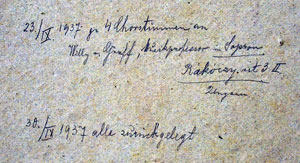 23./IV 1937 je 4 Chorstimmen an
Willy - Graff, Musikprofessor in Sopron
Rákóczy út 3 II
Ungarn
30./IV 1937 alle zurückgelegt